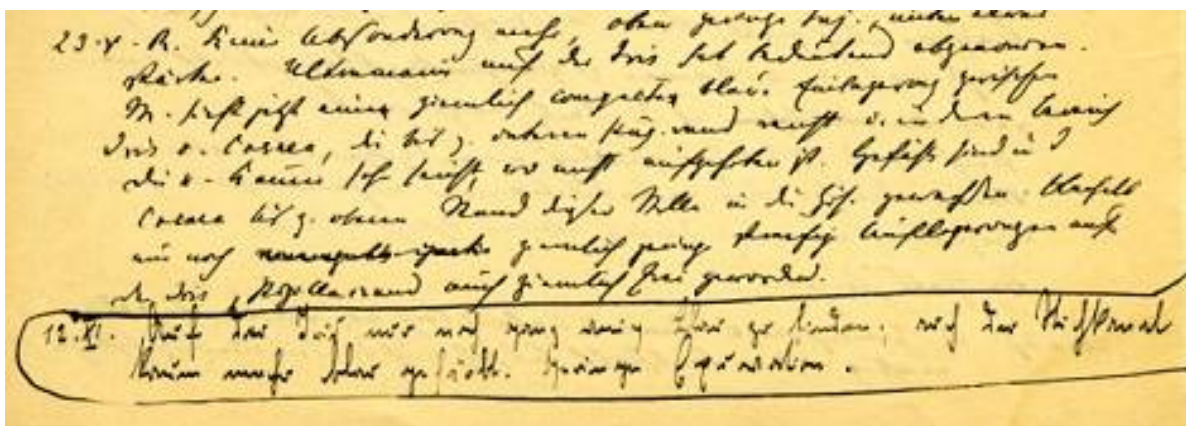 23.X. R. keine Absonderung mehr, oben geringe Inj., unten etwas
stärker. Ultramarin auf der Iris hat bedeutend abgenommen.
M. sieht jetzt eine ziemlich compacte blaue Einlagerung zwischen
Iris u. Cornea, die bis z. unteren
die v. Kammer sehr seicht, wo nicht aufgehoben ist. Gefäße sind in d
Cornea bis z. oberen Rand dieser Stelle in die gewachsen. Oberhalb
nur noch ziemlich geringe streifige Auflagerungen auf
der Iris, Pupillarrand auch ziemlich frei geworden.
12.XI. Auf der Iris nur noch ganz wenig blau zu finden; auch der Stichkanal
kaum mehr blau gefärbt. Geringe